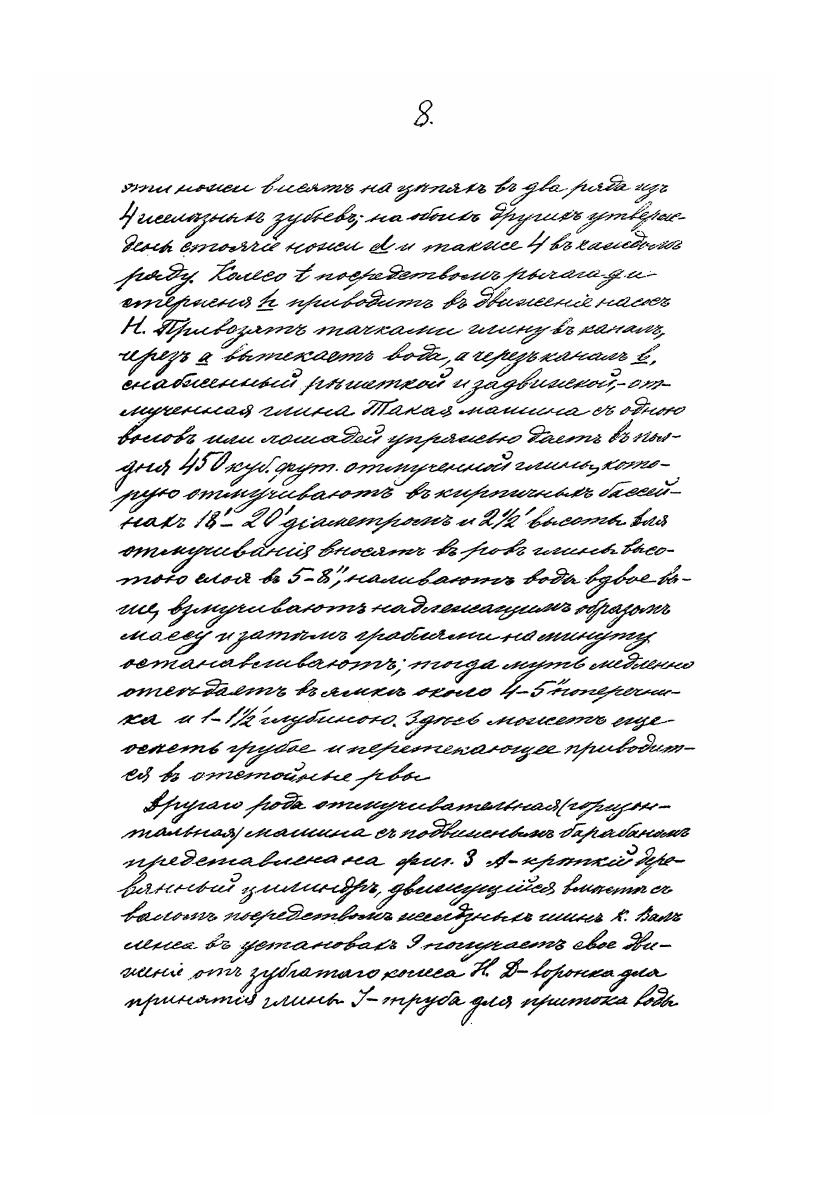 8.
эти ножи висятъ на цѣпяхъ въ два ряда изъ
4 желѣзныхъ зубьевъ; на обоихъ другихъ утверж-
дены стоячіе ножи d и также 4 въ каждомъ
ряду. Колесо t посредствомъ рычага g и
стержня h приводитъ въ движеніе насосъ
H. Привозятъ тачками глину въ каналъ,
черезъ a вытекаетъ вода, а черезъ каналъ b,
снабженный рѣшеткой и задвижкой,- от-
мученная глина. Такая машина съ одною
воловъ или лошадей упряжью даетъ въ пол-
дня 450 куб. фут. отмученной глины, кото-
рую отмучиваютъ въ кирпичныхъ бассей-
нахъ 18'- 20' діаметромъ и 2 1/2' высоты. Для
отмучиванія вносятъ въ ровъ глины высо-
тою слоя въ 5-8", наливаютъ воды вдвое вы-
ше, взмучиваютъ надлежащимъ образомъ
массу и затѣмъ граблями на минуту
останавливаютъ; тогда муть медленно
отсѣдаетъ въ ямкѣ около 4-5" поперечни-
ка и 1-1 1/2' глубиною. Здѣсь можетъ еще
осѣсть грубое и перетекающее приводит-
ся въ отстойные рвы
Другаго рода отмучивательная (горизон-
тальная) машина съ подвижнымъ барабаномъ
представлена на фиг. 3 A- крѣпкій дере-
вянный цилиндръ, движущійся вмѣстѣ съ
валомъ посредствомъ желѣзныхъ шинъ k. Валъ
лежа въ установахъ J получаетъ свое дви-
женіе отъ зубчатаго колеса H. D- воронка для
принятія глины J- труба для притока воды